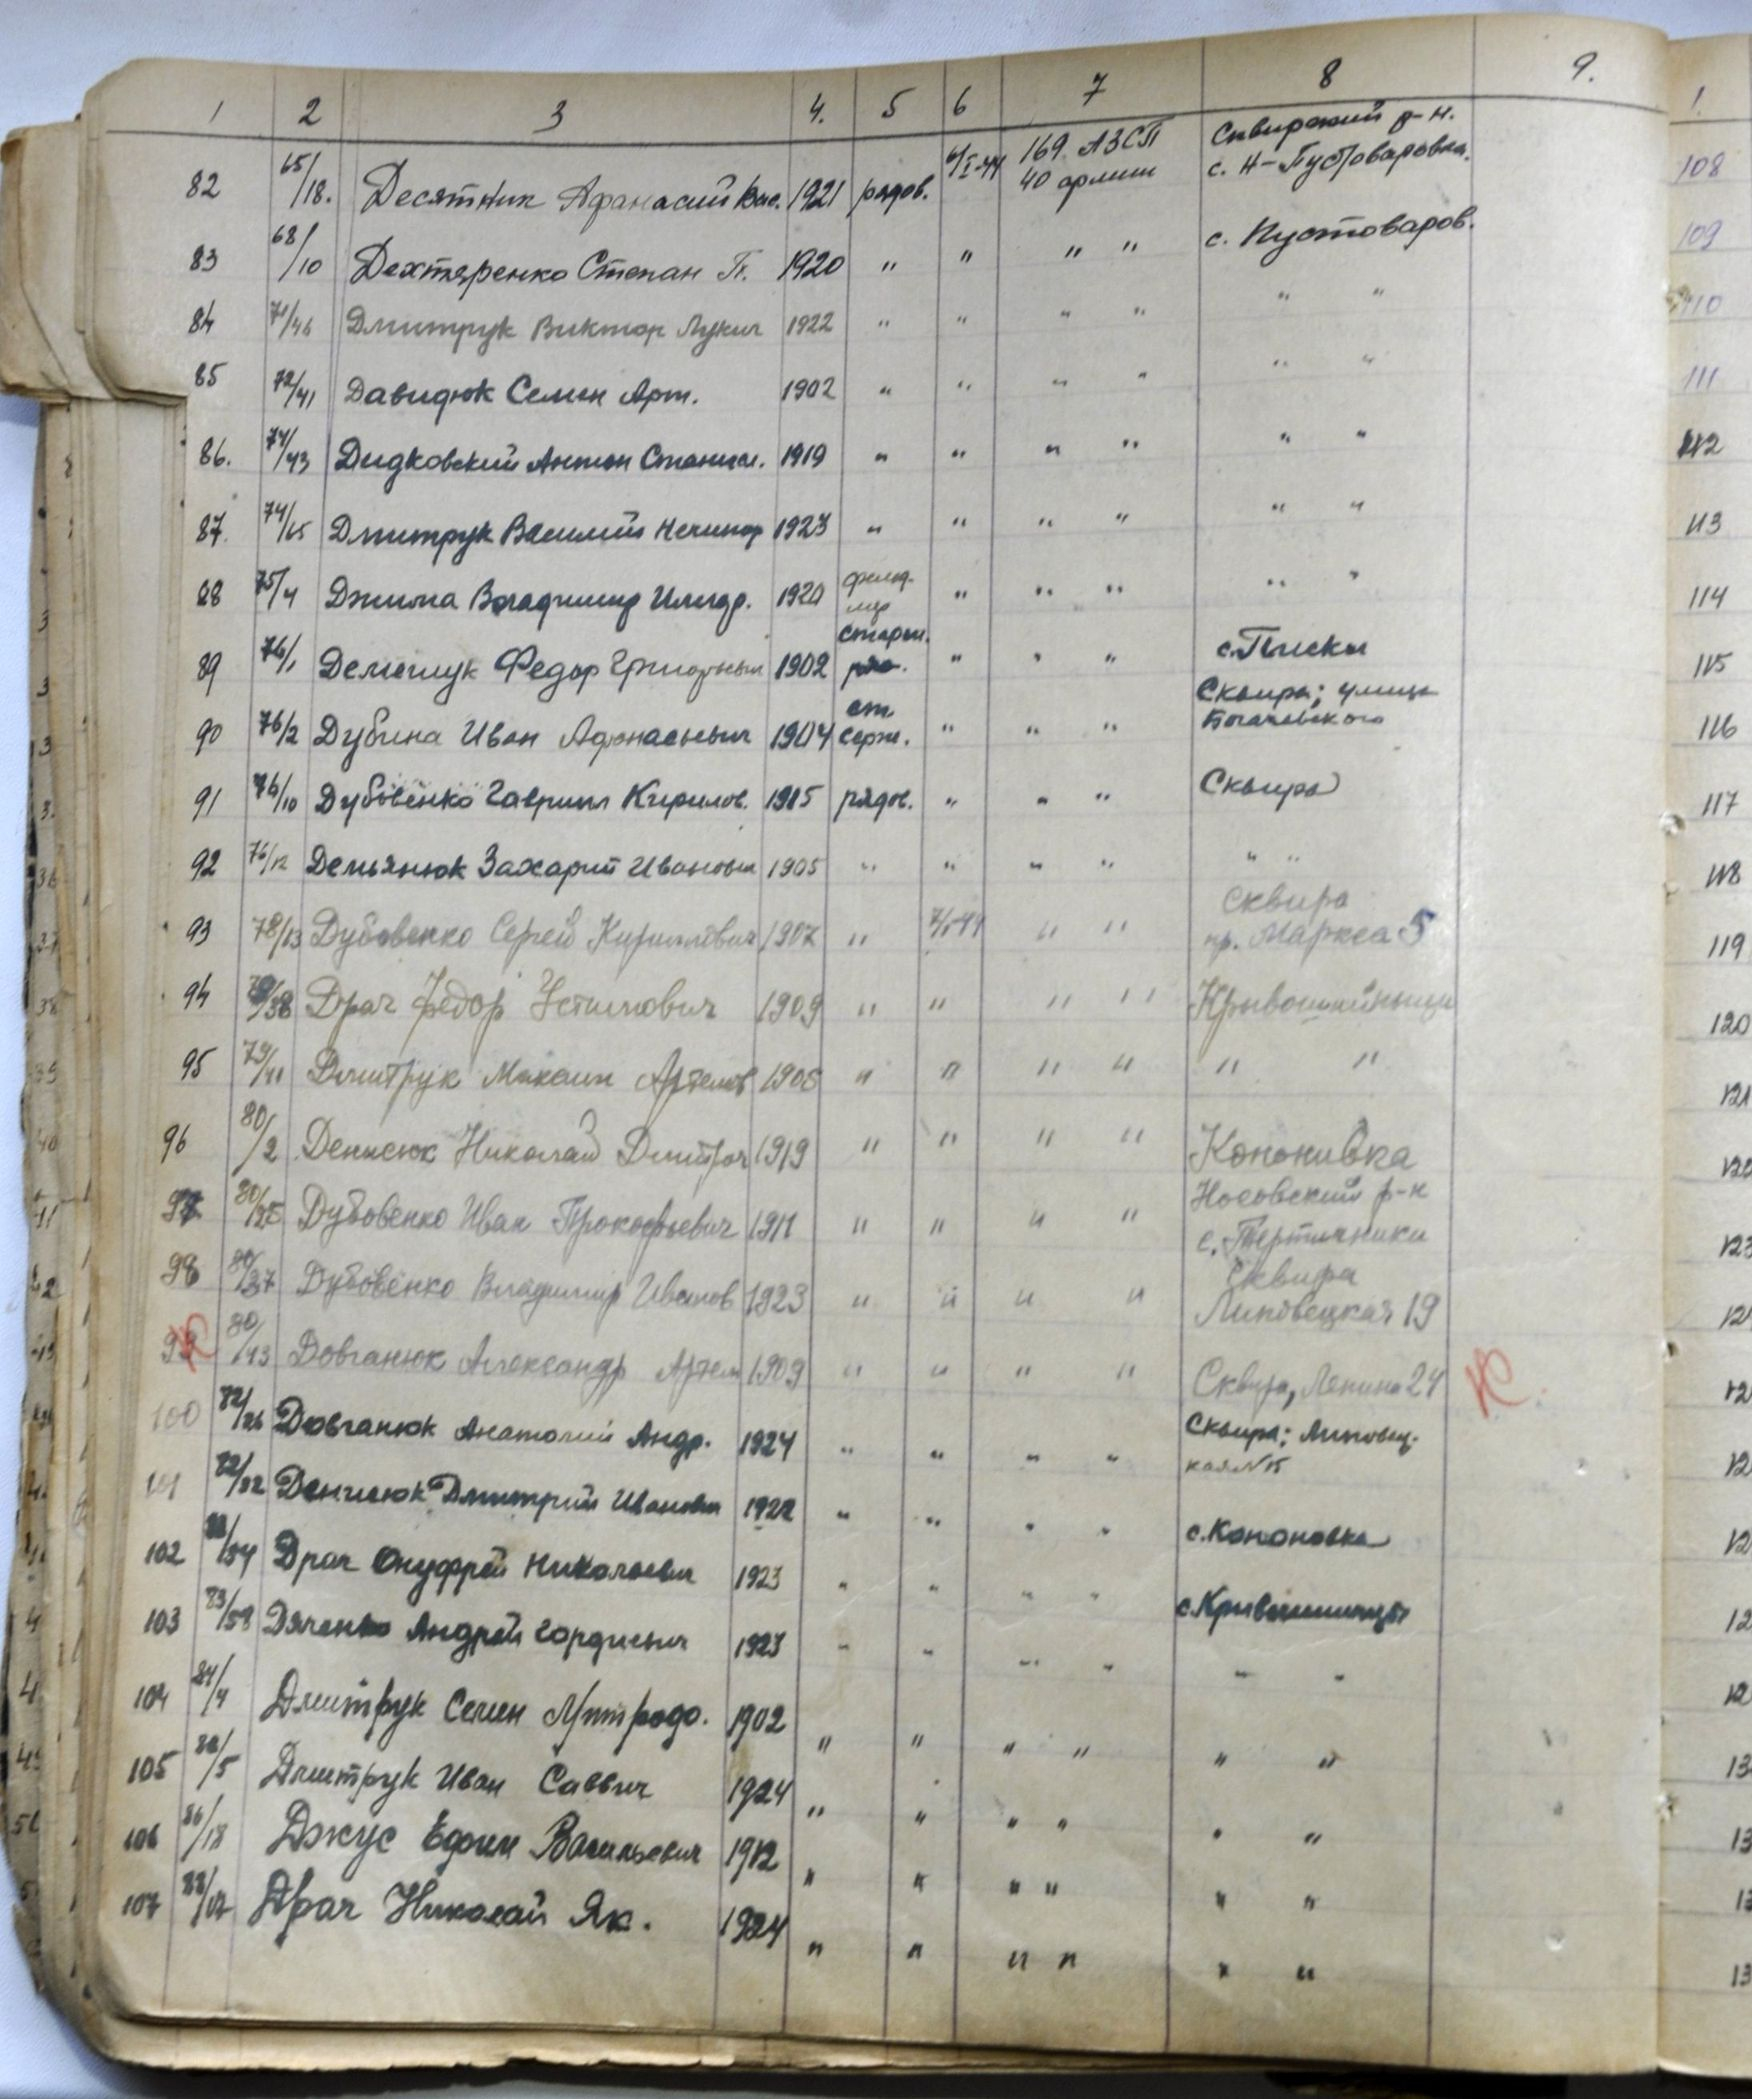 1 2 3 4. 5 6 7 8 9.
82 65/18. Десятник Афанасий Вас. 1921 рядов. 6/I-44 169 АЗСП 40 армии Сквирский р-н. с. Н-Пустоваровка.
83 68/10 Дехтяренко Степан П. 1920 " " " " с. Пустоваров.
84 71/46 Дмитрук Виктор Лукич 1922 " " " " " "
85 72/41 Давидюк Семен Арт. 1902 " " " " " "
86. 74/43 Дидковский Антон Станисл. 1919 " " " " " "
87. 74/65 Дмитрук Василий Нечипор 1923 " " " " " "
88 75/4 Владимир 1920 " " " " "
89 76/1 Демещук Федор Григорьевич 1902 старш. " " " с. Писки
90 76/2 Дубина Иван Афанасьевич 1904 ст. серж. " " " Сквира; улица
91 76/10 Дубовенко Гаврил Кирилов. 1915 рядов. " " " Сквира
92 76/12 Демьянюк Захарий Иванович 1905 " " " " " "
93 78/13 Дубовенко Сергей Кириллович 1907 " " " Сквира пр. Маркса 5
94 79/38 Драч Федор Устимович 1909 " " " "
95 79/41 Дмитрук Максим Артемов 1905 " " " " " "
96 80/2 Денисюк Николай Дмитрач 1919 " " " " Кононивка
97 80/25 Дубовенко Иван Прокофьевич 1911 " " " " Носовский р-н с. Тертишники
98 80/37 Дубовенко Владимир Иванов 1923 " " " " Сквира Липовецкая 19
99 80/43 Довганюк Александр Артем 1909 " " " " Сквира, Ленина 24
100 82/26 Довганюк Анатолий Андр. 1924 " " " " Сквира; Липовец- кая
101 82/32 Денисюк Дмитрий Иванович 1922 " " " " с. Кононовка
102 /54 Драч Онуфрей Николаевич 1923 " " " " с.
103 83/58 Дяченко Андрей Гордиевич 1923 " " " " " "
104 84/4 Дмитрук Семен Митрофо. 1902 " " " " " "
105 86/5 Дмитрук Иван Саввич 1924 " " " " " "
106 86/18 Джус Ефим Васильевич 1912 " " " " " "
107 88/17 Драч Николай Як. 1924 " " " " " "
1
108
109
110
111
112
113
114
115
116
117
118
119
120
121